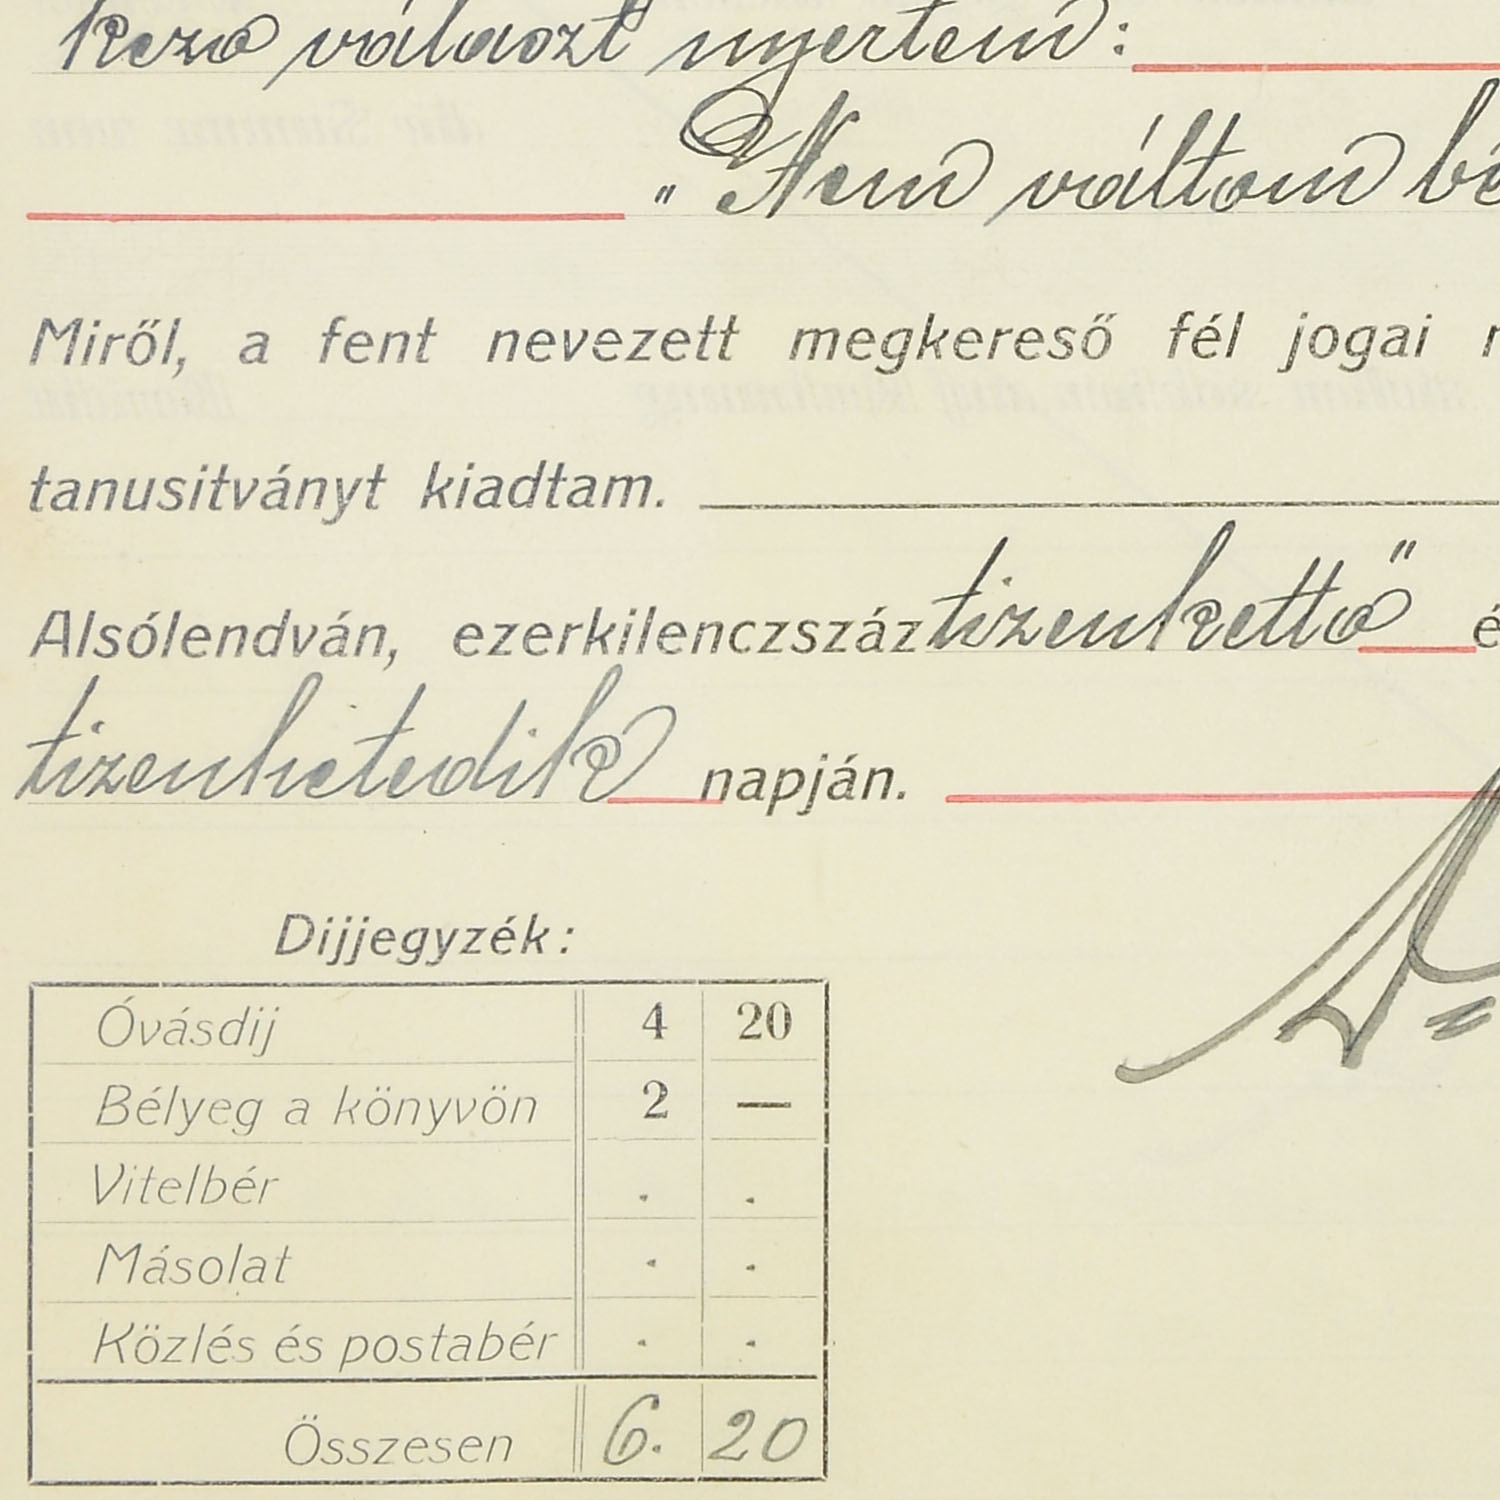 kező választ nyertem:
"Nem váltom be
Miről, a fent nevezett megkereső fél jogai
tanusitványt kiadtam.
Alsólendván, ezerkilenczszáztizenkettő é
tizenhetedik napján.
Dijjegyzék:
Óvásdij 4 20
Bélyeg a könyvön 2 —
Vitelbér . .
Másolat . .
Közlés és postabér . .
Összesen 6. 20